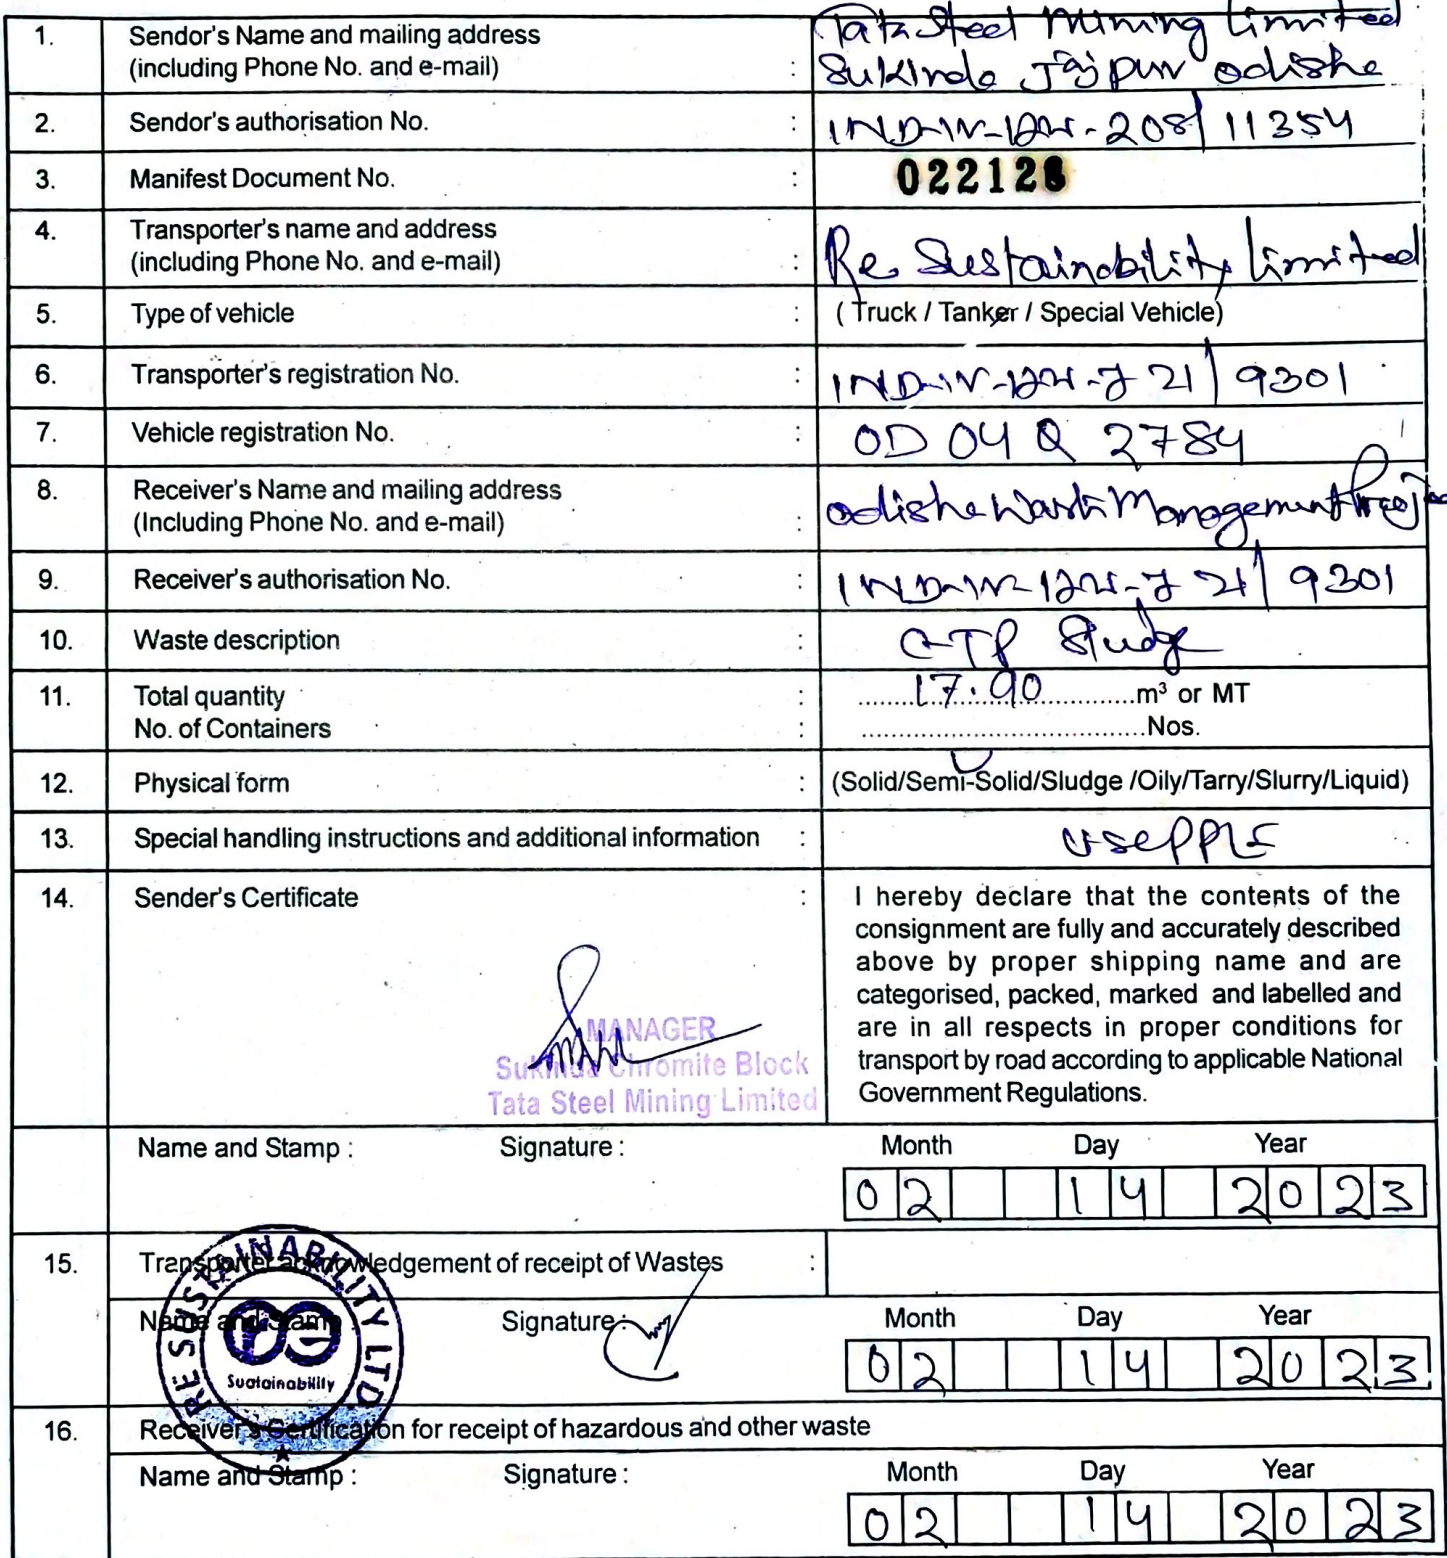 1. Sendor's Name and mailing address
(including Phone No. and e-mail) :
Tata Steel Mining Limited
Sukinda Jajpur odisha
2. Sendor's authorisation No. : IND-IV-HW-208/11354
3. Manifest Document No. : 02212
4. Transporter's name and address
(including Phone No. and e-mail) : Re Sustainability limited
5. Type of vehicle : ( Truck / Tanker / Special Vehicle)
6. Transporter's registration No. : IND-IV-HW-J 21/9301
7. Vehicle registration No. : OD 04 Q 2784
8. Receiver's Name and mailing address
(Including Phone No. and e-mail) : odisha Waste Management Project
9. Receiver's authorisation No. : IND-IV-HW-J 21/9301
10. Waste description : ETP Sludge
11. Total quantity : ........17.90............m³ or MT
No. of Containers : ....................................Nos.
12. Physical form : (Solid/Semi-Solid/Sludge /Oily/Tarry/Slurry/Liquid)
13. Special handling instructions and additional information : use PPE
14. Sender's Certificate :
I hereby declare that the contents of the
consignment are fully and accurately described
above by proper shipping name and are
categorised, packed, marked and labelled and
are in all respects in proper conditions for
transport by road according to applicable National
Government Regulations.
MANAGER
Sukinda Chromite Block
Tata Steel Mining Limited
Name and Stamp : Signature : Month Day Year
02 14 2023
15. Transporter acknowledgement of receipt of Wastes :
Name and Stamp : Signature : Month Day Year
02 14 2023
RE SUSTAINABILITY LTD.
re
Sustainability
16. Receiver's Certification for receipt of hazardous and other waste
Name and Stamp : Signature : Month Day Year
02 14 2023